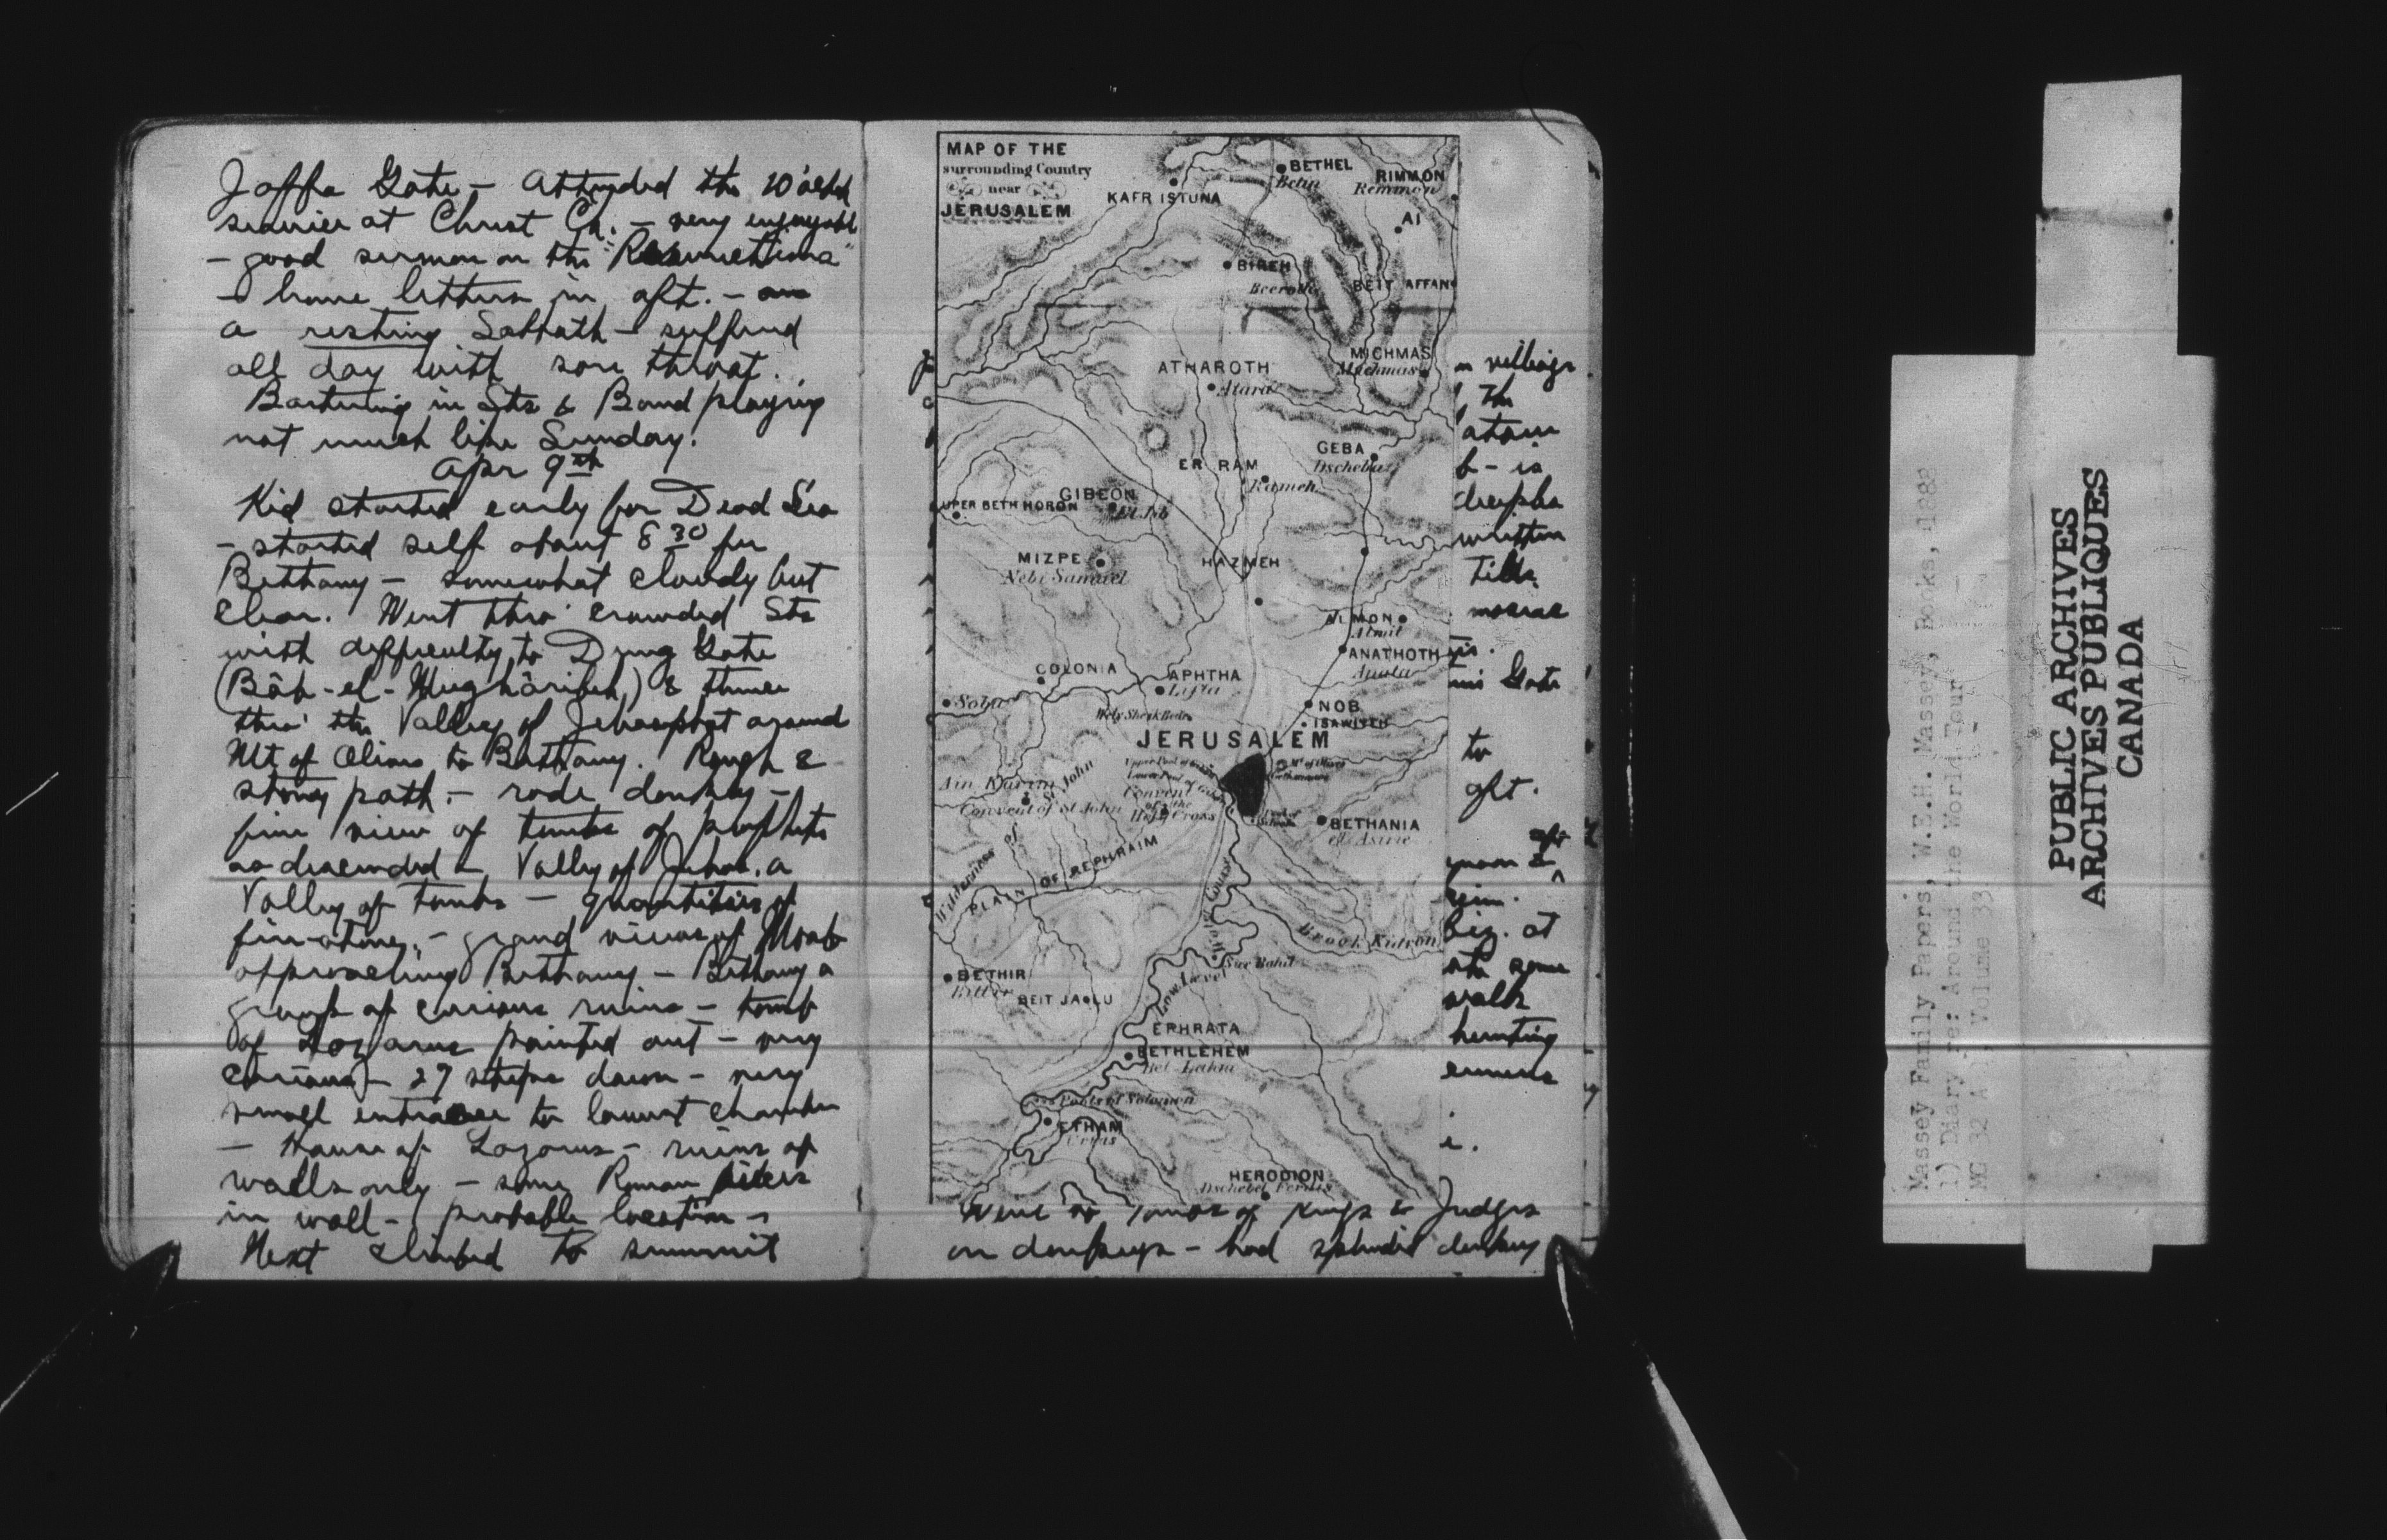 Joffa Gate – Attended the 10 o'clock
service at Christ Ch. – very enjoyable
– good sermon on the "Resurrection"
– home letters in aft. –
a resting Sabbath – suffered
all day with sore throat.
Bartering in Sts & Band playing
not much like Sunday.
Apr 9th
Kid started early for Dead Sea
– started self about 8 30 for
Bethany – somewhat cloudy but
clear. Went thro' crowded Sts
with difficulty to Dung Gate
(Bâb-el-Mughâribeh) & thence
thro' the Valley of Jehosaphat around
Mt of Olives to Bethany. Rough &
stony path. – rode donkey –
fine view of tombs of prophets
as descended – Valley of Jehos. a
Valley of tombs – quantities of
fire-stone. – grand views of Moab
approaching Bethany – Bethany a
group of curious ruins – tomb
of Lazarus pointed out – very
curious – 27 steps down – very
small entrance to lowest chamber
– House of Lazarus – ruins of
walls only – some Roman
in wall – probable location –
Next climbed to summit
MAP OF THE
surrounding Country
near
JERUSALEM
KAFR ISTUNA
BETHEL
Betin
RIMMON
Remmon
AI
BIREH
Beeroth
BEIT AFFAN
ATHAROTH
Atara
MICHMAS
Machmas
GEBA
Dscheba
ER RAM
Rameh
UPER BETH HORON
GIBEON
El Jib
MIZPE
Nebi Samuel
HAZMEH
ALMON
Almit
ANATHOTH
Anata
COLONIA
APHTHA
Lifta
Soba
NOB
ISAWIYEH
JERUSALEM
Ain Karim
St John
Convent of St John
Convent
of the
Holy Cross
Mt of Olives
BETHANIA
el Asirie
Wilderness of
PLAIN OF REPHRAIM
Brook Kidron
Sur Bahil
Low Level
BETHIR
Bittir
BEIT JALU
EPHRATA
BETHLEHEM
Bet-Lahm
Pools of Solomon
ETHAM
Urtas
HERODION
Dschebel Ferdis
village
the
is
written
mosaic
Gate
to
aft.
at
some
walls
hunting
Went to Tombs of Kings & Judges
on donkeys – had splendid donkey
PUBLIC ARCHIVES
ARCHIVES PUBLIQUES
CANADA
Massey Family Papers, W.E.H. Massey, Books, 1888
1) Diary re: Around the World Tour
MG 32 A 1, Volume 33